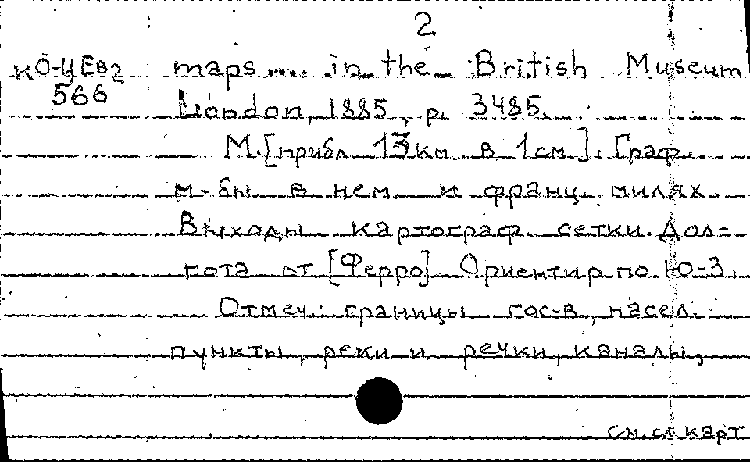 2
КО-ЦЕв2 maps .... in the British Museum
566 London, 1885, p. 3485.
М. [прибл. 13 км в 1 см]. Граф.
м-бы в нем. и франц. милях.
Выходы картограф. сетки. Дол-
гота от [Ферро]. Ориентир. по Ю-З.
Отмеч.: границы гос-в, насел.
пункты, реки и речки, каналы,
см. сл. карт